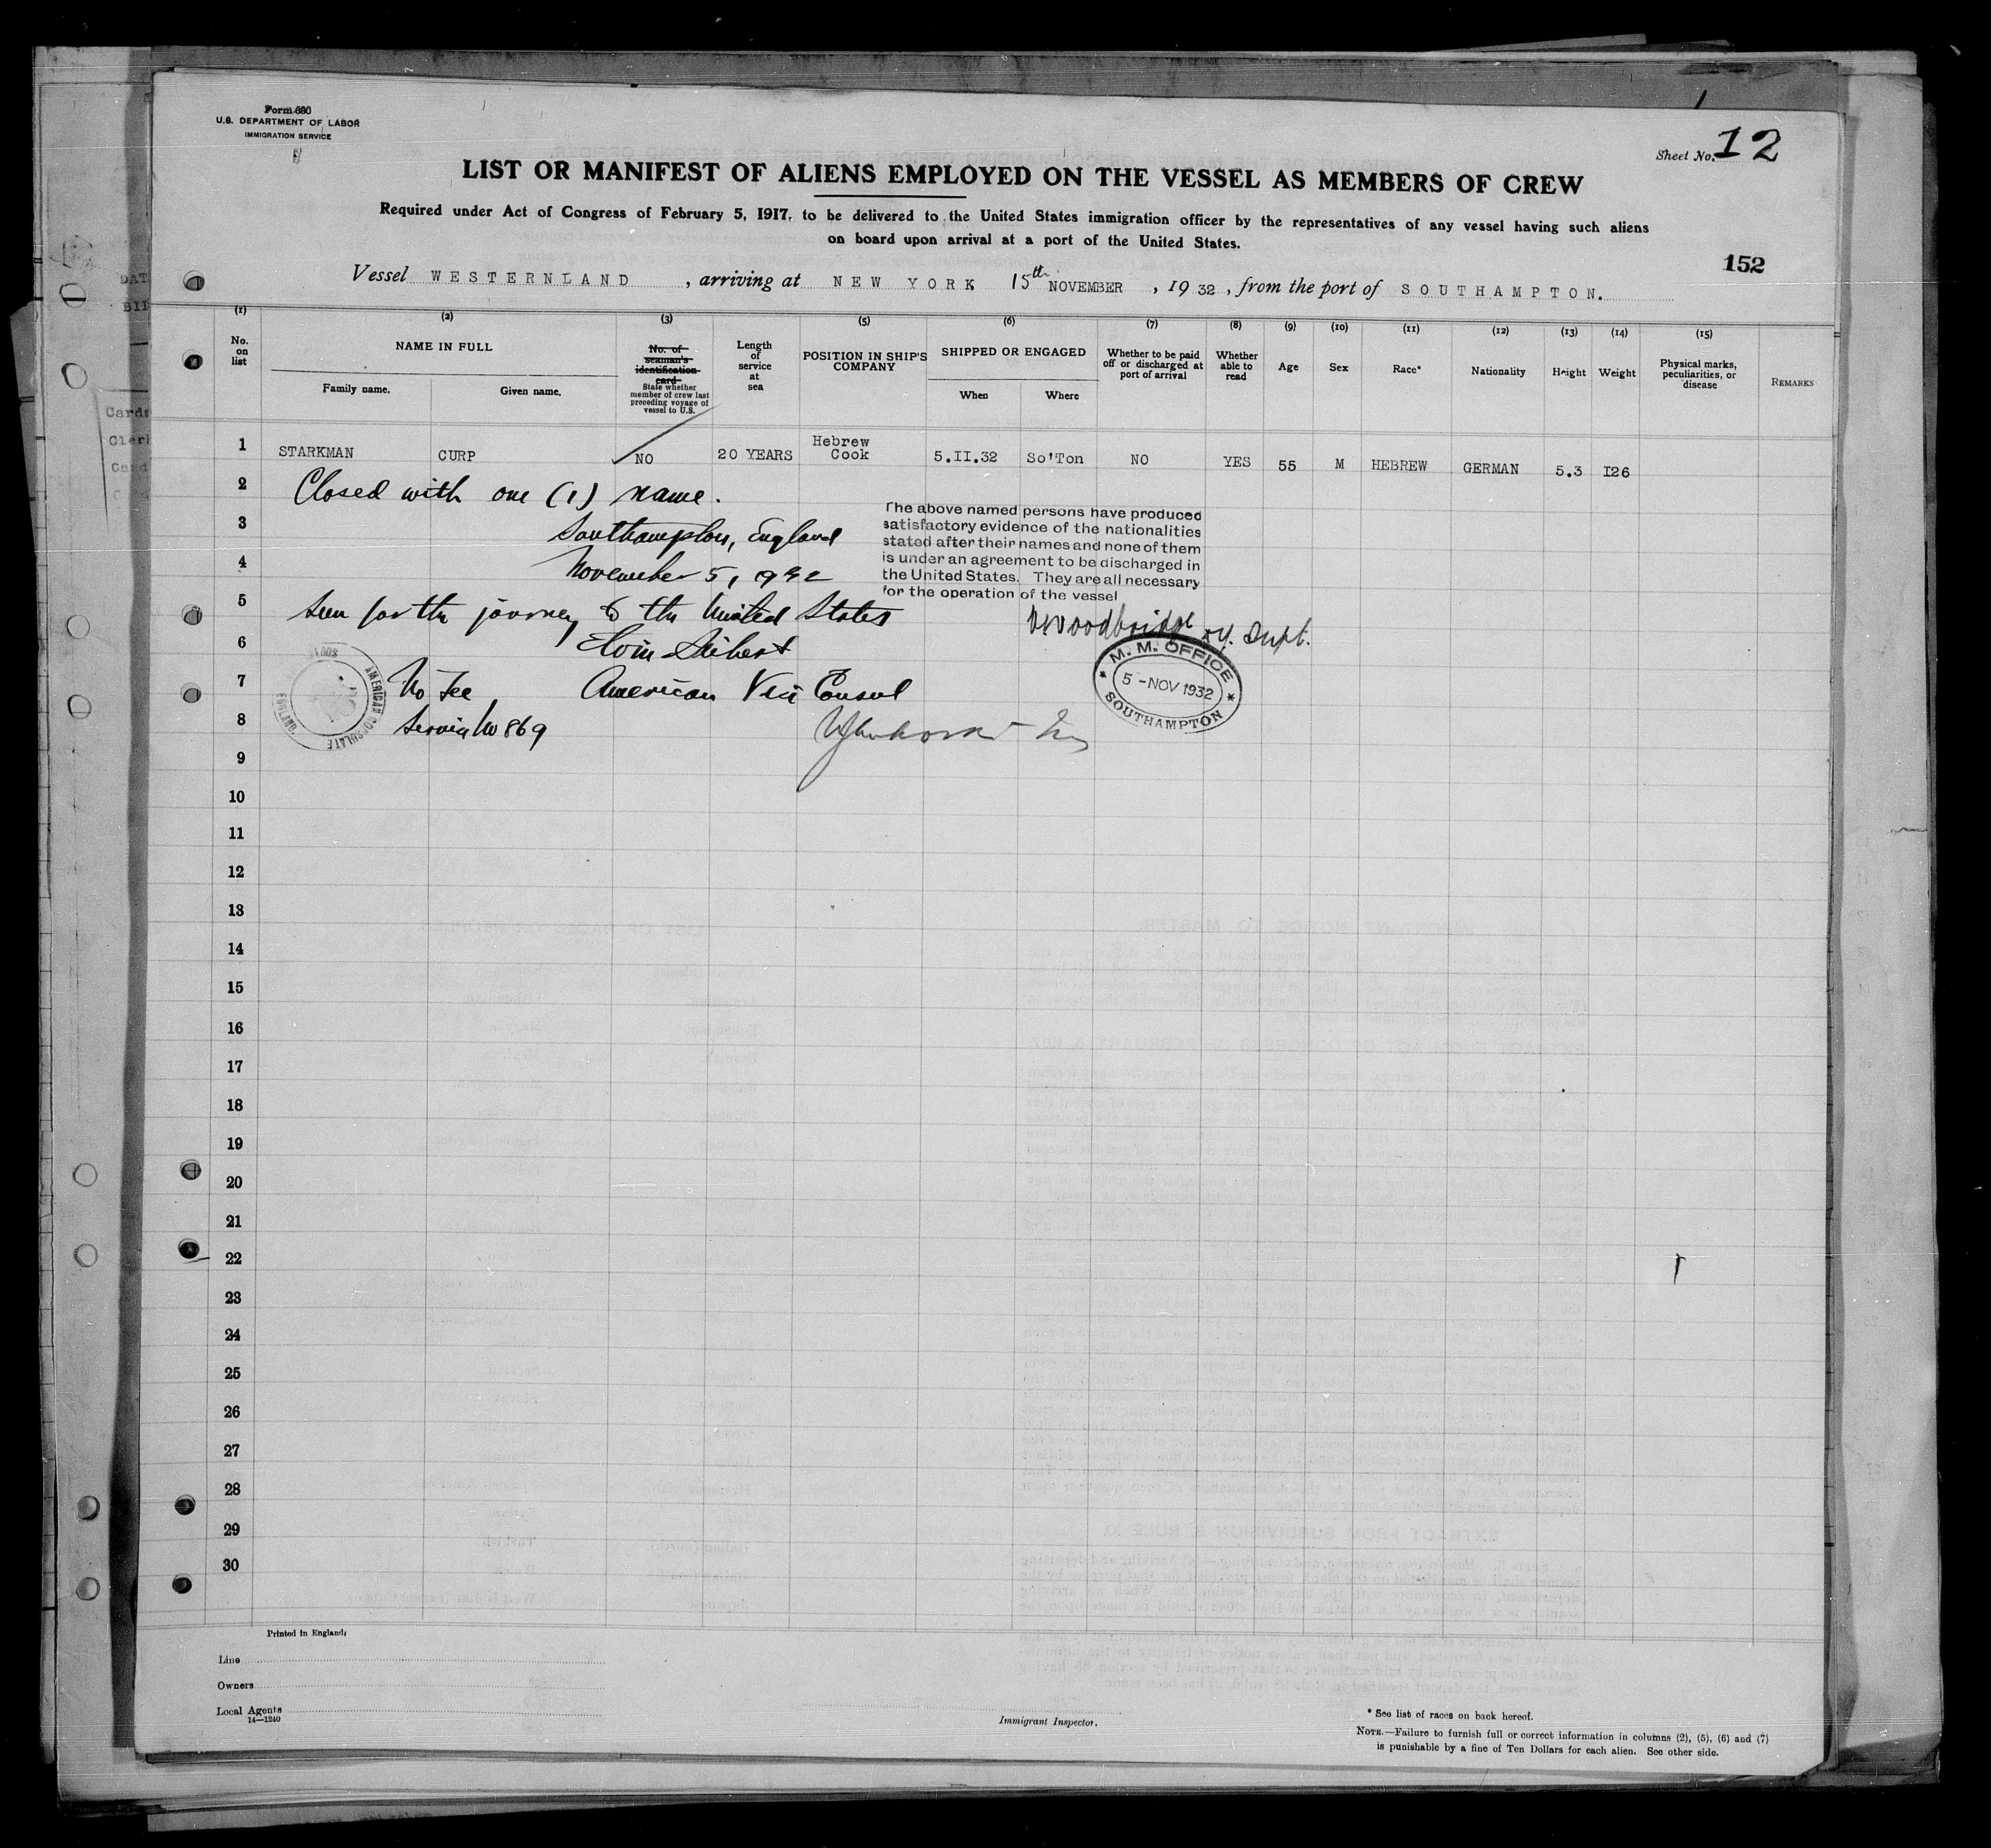 Form 680
U.S. DEPARTMENT OF LABOR
IMMIGRATION SERVICE
Sheet No. 12
LIST OR MANIFEST OF ALIENS EMPLOYED ON THE VESSEL AS MEMBERS OF CREW
Required under Act of Congress of February 5, 1917, to be delivered to the United States immigration officer by the representatives of any vessel having such aliens
on board upon arrival at a port of the United States.
152
Vessel WESTERNLAND, arriving at NEW YORK 15th NOVEMBER, 1932, from the port of SOUTHAMPTON.
(1) (2) (3) (5) (6) (7) (8) (9) (10) (11) (12) (13) (14) (15)
No. on list
NAME IN FULL
Family name. Given name.
No. of seaman's identification card
State whether member of crew last preceding voyage of vessel to U.S.
Length of service at sea
POSITION IN SHIP'S COMPANY
SHIPPED OR ENGAGED
When Where
Whether to be paid off or discharged at port of arrival
Whether able to read
Age
Sex
Race*
Nationality
Height
Weight
Physical marks, peculiarities, or disease
REMARKS
1 STARKMAN CURP NO 20 YEARS Hebrew Cook 5.II.32 So'Ton NO YES 55 M HEBREW GERMAN 5.3 I26
2 Closed with one (1) name.
The above named persons have produced
satisfactory evidence of the nationalities
stated after their names and none of them
is under an agreement to be discharged in
the United States. They are all necessary
for the operation of the vessel
3 Southampton, England
4 November 5, 1932
5 Seen for the journey to the United States
Woodbridge Dy. Supt.
6
M. M. OFFICE
5 - NOV 1932
SOUTHAMPTON
AMERICAN CONSULATE
ENGLAND
7 No Fee American Vice Consul
8 Service No 869
9
10
11
12
13
14
15
16
17
18
19
20
21
22
23
24
25
26
27
28
29
30
Printed in England.
Line
Owners
Local Agents
14—1240
Immigrant Inspector.
* See list of races on back hereof.
NOTE.—Failure to furnish full or correct information in columns (2), (5), (6) and (7)
is punishable by a fine of Ten Dollars for each alien. See other side.